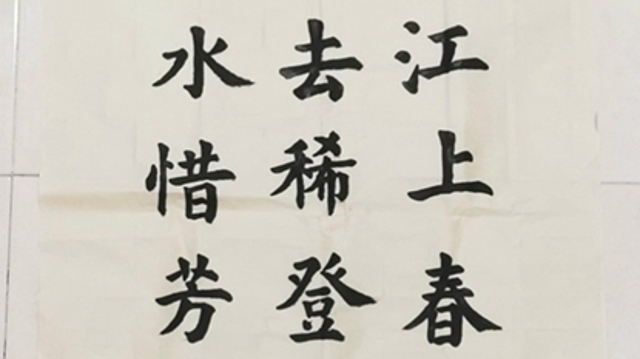 江上春
去稀登
水惜芳